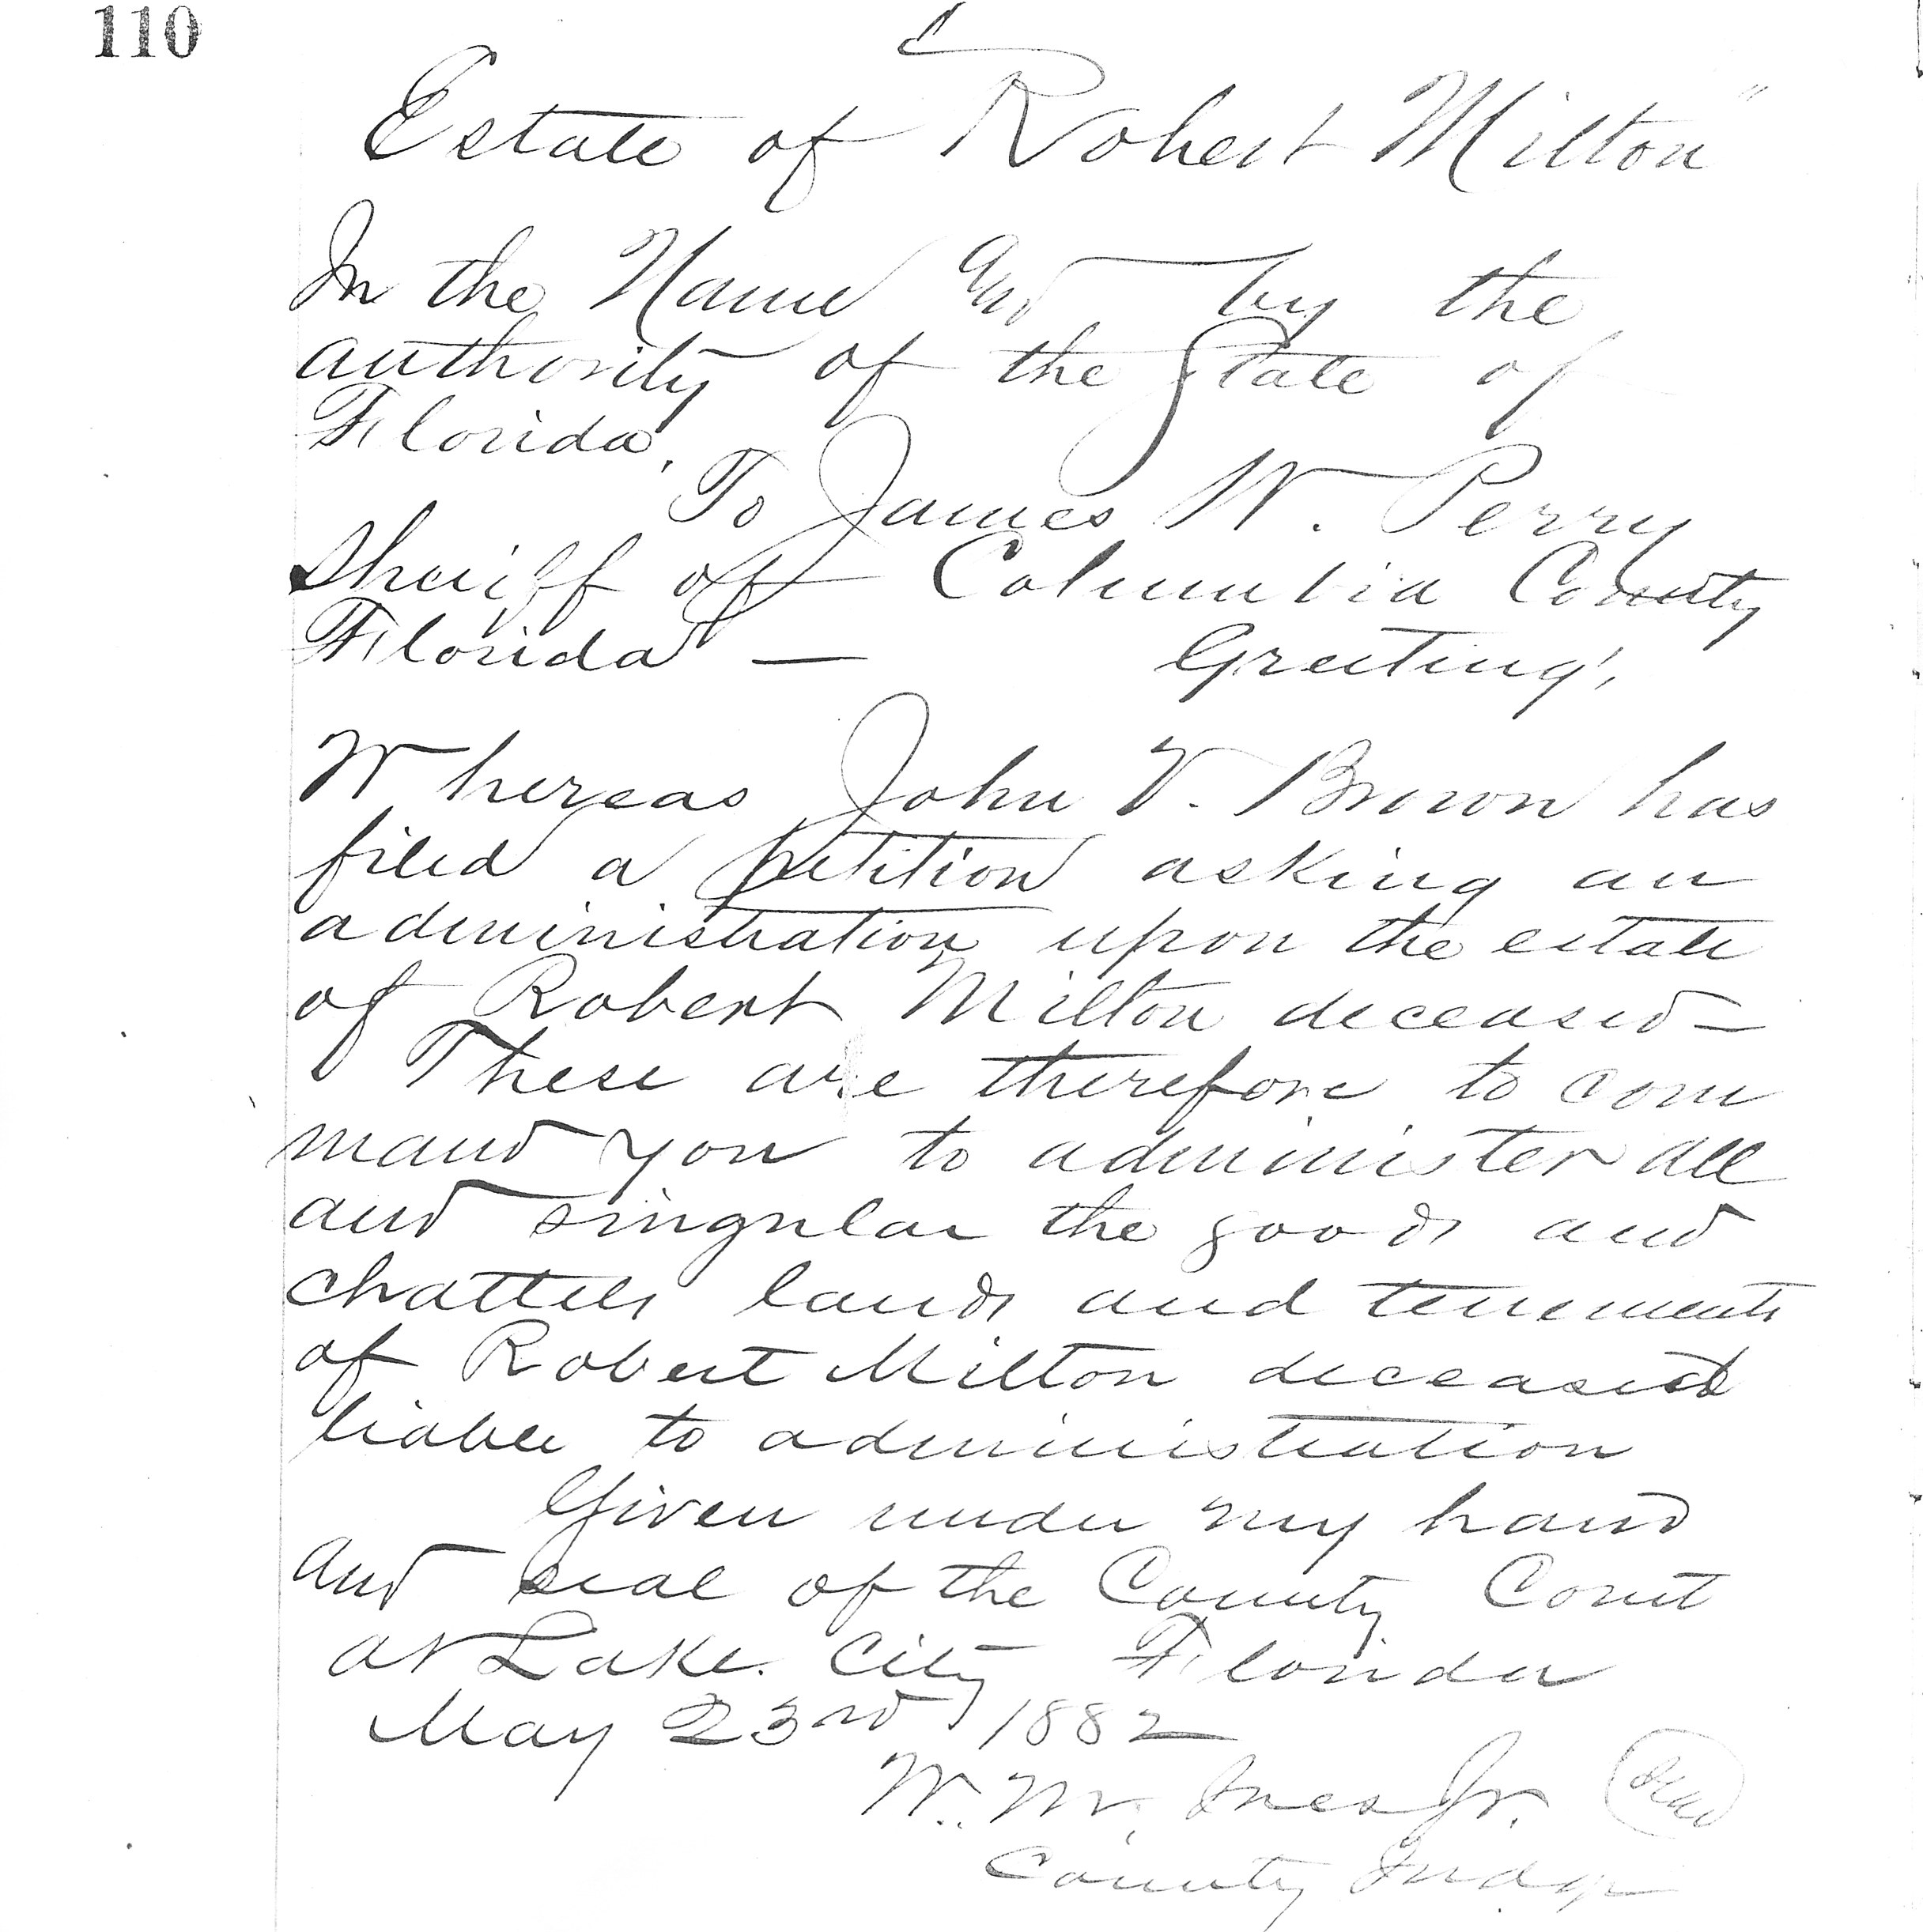 110
Estate of "Robert Milton"
In the Name and by the
authority of the State of
Florida,
To James W. Perry
Sheriff of Columbia County
Florida — Greeting,
Whereas John V. Brown has
filed a petition asking an
administration upon the estate
of Robert Milton deceased —
These are therefore to com
mand you to administer all
and singular the goods and
chattels lands and tenements
of Robert Milton deceased
liable to administration
Given under my hand
and seal of the County Court
at Lake City Florida
May 23rd 1882
W. M. Ives Jr. Seal
County Judge